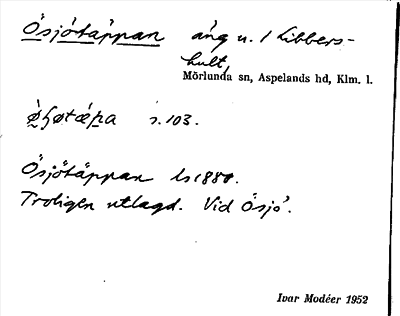 Ösjötäppan äng u. / Libbers-
hult,
Mörlunda sn, Aspelands hd, Klm. l.
s. 103.
Ösjötäppan ls 1880.
Troligen utlagd. Vid Ösjö.
Ivar Modéer 1952